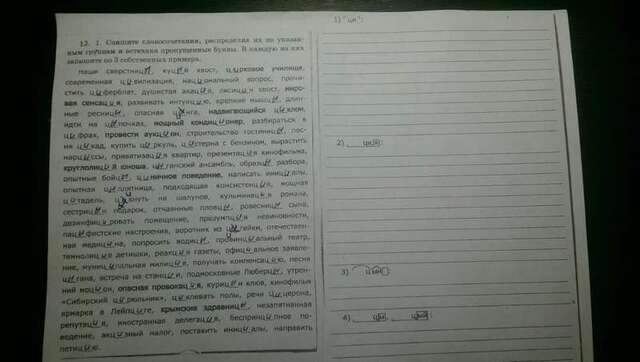 12. 1. Спишите словосочетания, распределяя их по указан-
ным группам и вставляя пропущенные буквы. В каждую из них
запишите по 3 собственных примера.
Наши сверстницы, куцый хвост, цирковое училище,
современная цивилизация, национальный вопрос, прочи-
стить циферблат, душистая акация, лисицын хвост, миро-
вая сенсация, развивать интуицию, крепкие мышцы, длин-
ные ресницы, опасная цинга, надвигающийся циклон,
идти на цыпочках, мощный кондиционер, разбираться в
цифрах, провести аукцион, строительство гостиницы, пес-
ня цикад, купить циркуль, цистерна с бензином, вырастить
нарциссы, приватизация квартир, презентация кинофильма,
круглолицый юноша, цыганский ансамбль, образцы разбора,
опытные бойцы, циничное поведение, написать инициалы,
опытная цыплятница, подходящая консистенция, мощная
цитадель, цыкнуть на шалунов, кульминация романа,
сестрицын подарок, отчаянные пловцы, ровесницы сына,
дезинфицировать помещение, презумпция невиновности,
пацифистские настроения, воротник из цигейки, отечествен-
ная медицина, попросить водицы, провинциальный театр,
темнолицые детишки, реакция газеты, официальное заявле-
ние, муниципальная милиция, получать компенсацию, песня
цыгана, встреча на станции, подмосковные Люберцы, утрен-
ний моцион, опасная провокация, курицын клюв, кинофильм
«Сибирский цирюльник», циклевать полы, речи Цицерона,
ярмарка в Лейпциге, крымские здравницы, незапятнанная
репутация, иностранная делегация, беспринципное по-
ведение, акцизный налог, поставить инициалы, направить
петицию.
1) "ци":
2)
3)
4)